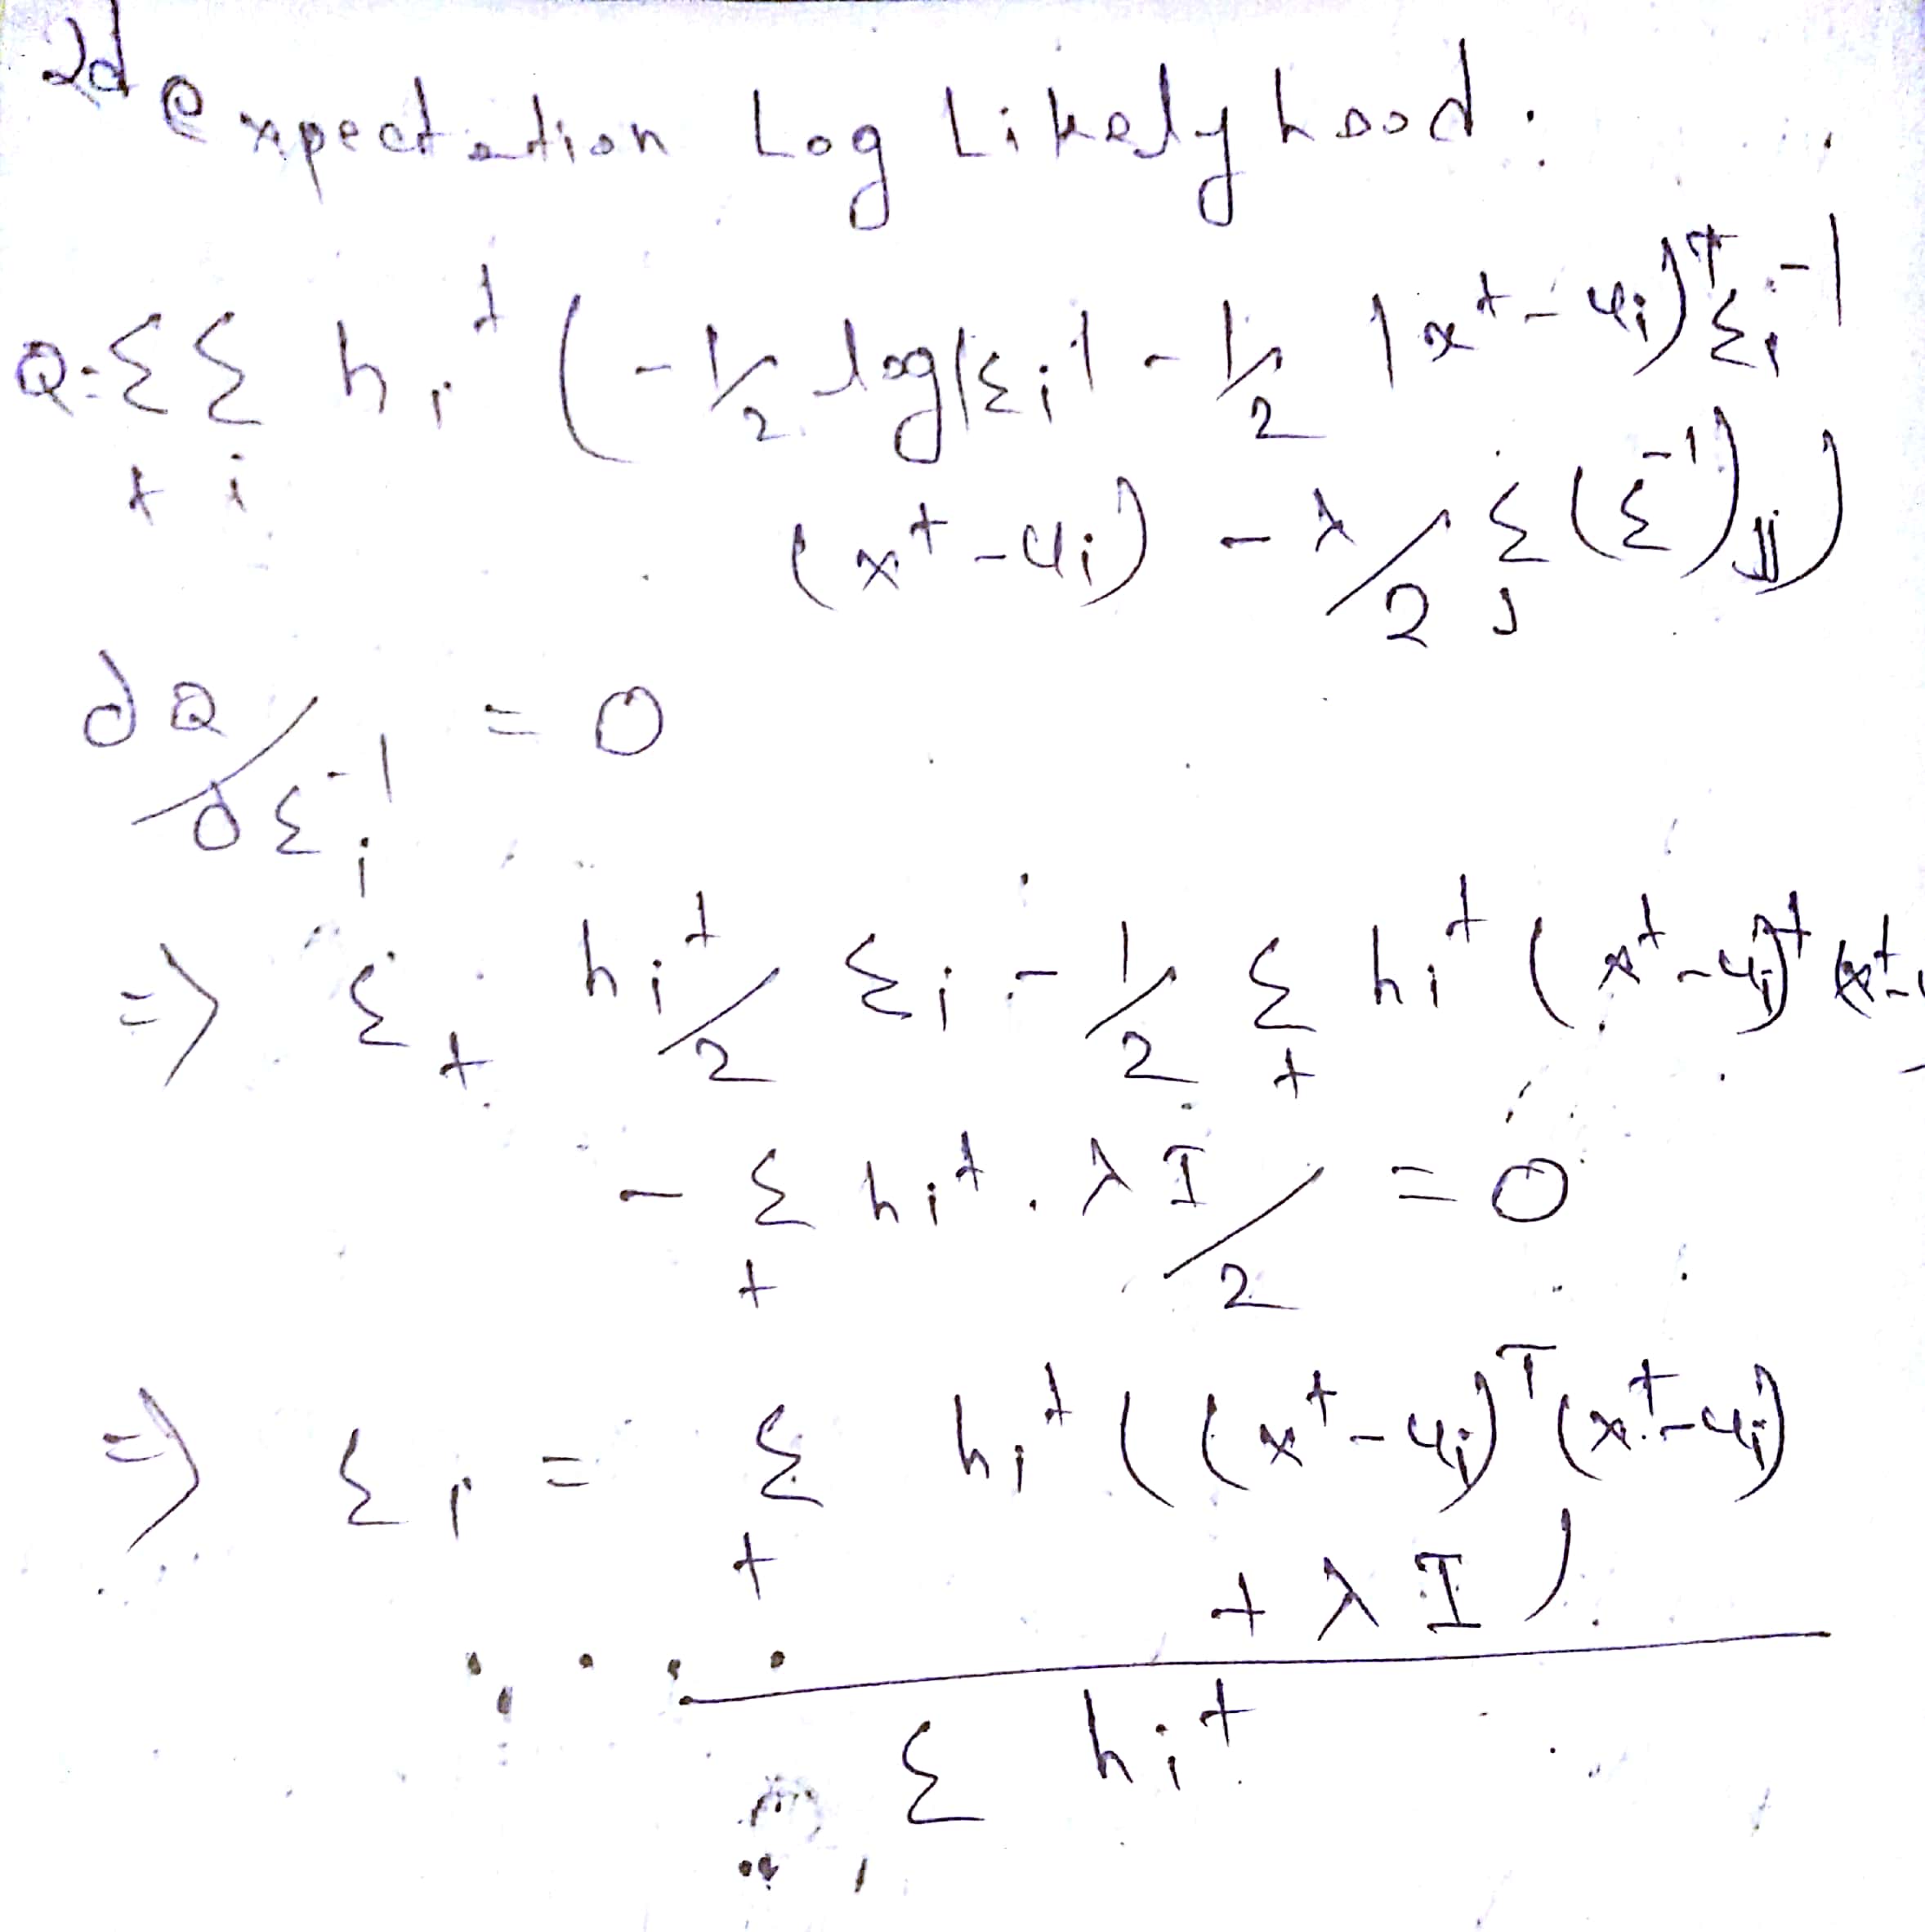 2d expectation Log Likelyhood:
Q = Σ Σ h_i^t ( - 1/2 log|Σ_i| - 1/2 (x^t - μ_i)^T Σ_i^-1
t i
(x^t - μ_i) - λ/2 Σ_j (Σ^-1)_jj )
∂Q/∂Σ_i^-1 = 0
=> Σ_t h_i^t/2 Σ_i - 1/2 Σ_t h_i^t (x^t - μ_i)^t (x^t -
- Σ_t h_i^t . λI/2 = 0
=> Σ_i = Σ_t h_i^t ( (x^t - μ_i)^T (x^t - μ_i)
+ λI )
Σ h_i^t